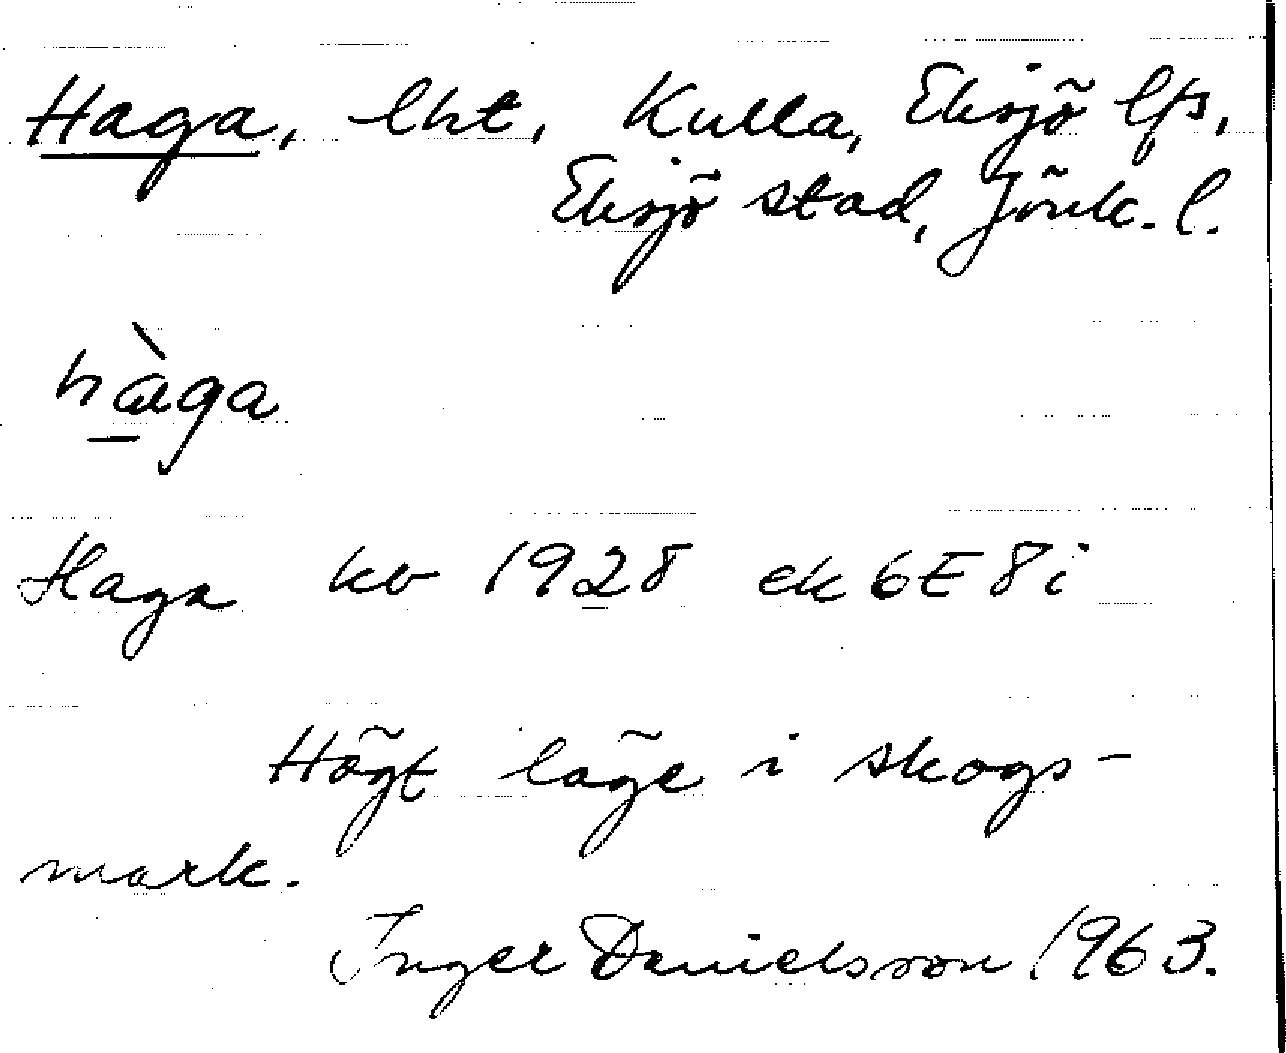 Haga, lht, Kulla, Eksjö lfs,
Eksjö stad, Jönk. l.
hàga
Haga kv 1928 ek 6E 8i
Högt läge i skogs-
mark.
Inger Danielsson 1963.